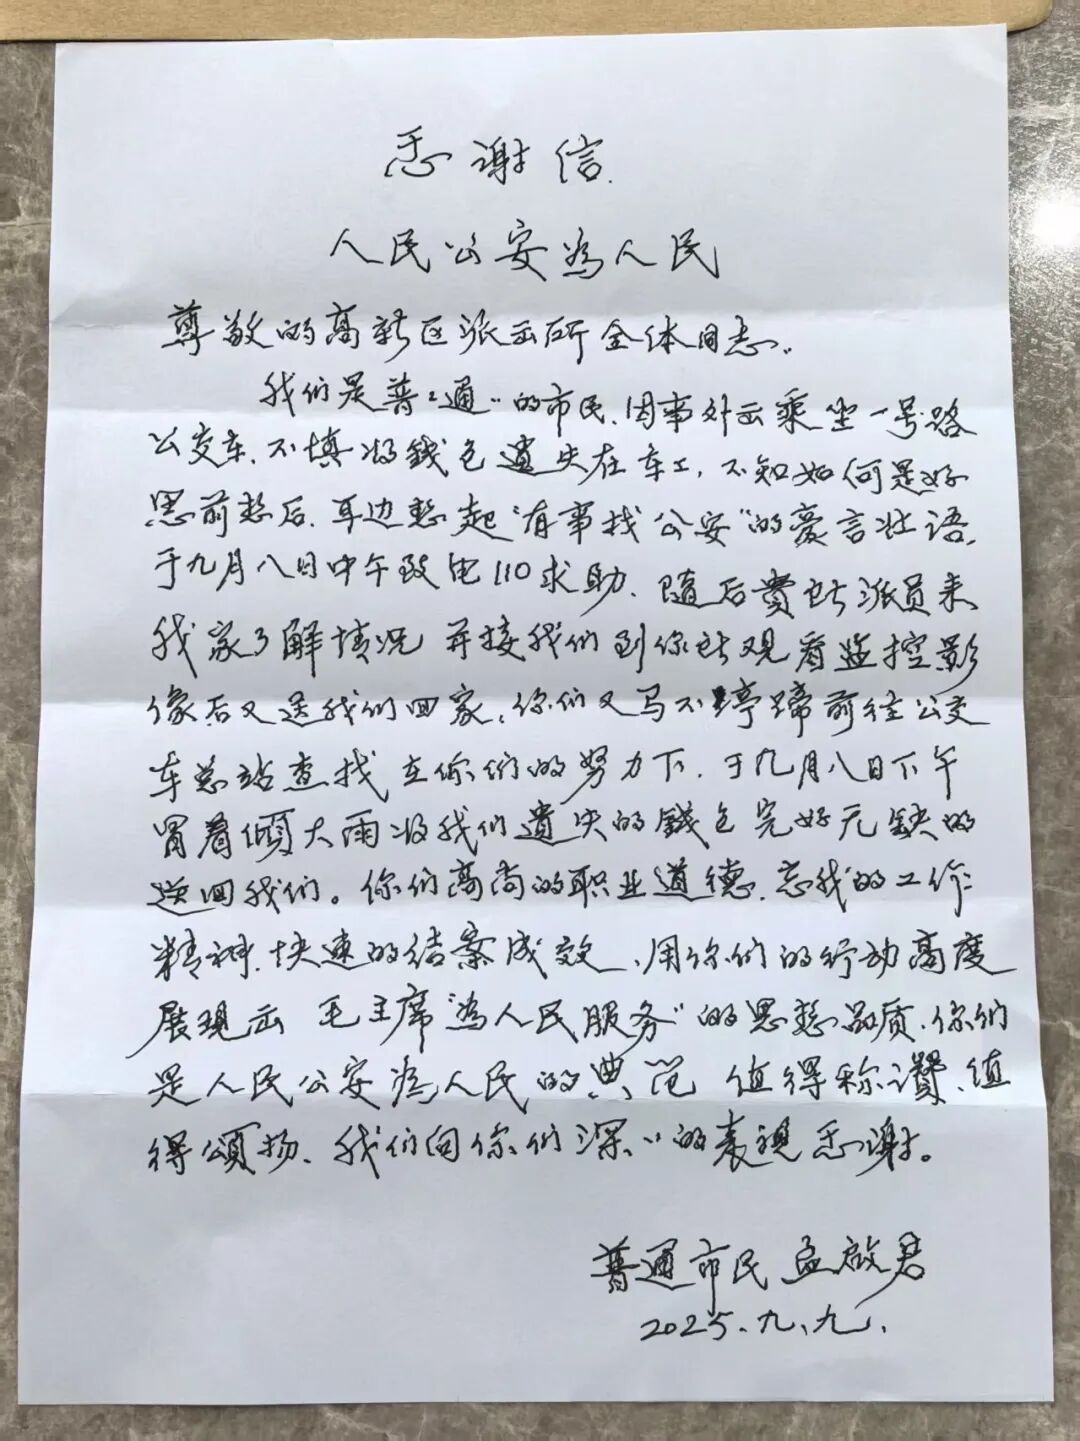 感谢信
人民公安為人民
尊敬的高新区派出所全体同志.
我们是普普通通的市民.因事外出乘坐一号路
公交车.不慎将錢包遗失在车上,不知如何是好
思前想后.耳边想起"有事找公安"的豪言壮语,
于九月八日中午致电110求助.随后贵站派员来
我家了解情况 并接我们到你站观看监控影
像后又送我们回家,你们又马不停蹄前往公交
车总站查找 在你们的努力下.于九月八日下午
冒着倾大雨将我们遗失的錢包完好无缺的
送回我们。你们高尚的职业道德.忘我的工作
精神.快速的结案成效、用你们的行动高度
展现出 毛主席"為人民服务"的思想品质.你们
是人民公安為人民的典范 值得称讚、值
得頌扬、我们向你们深深的表视感谢。
普通市民 孟啟君
2025.九、九、